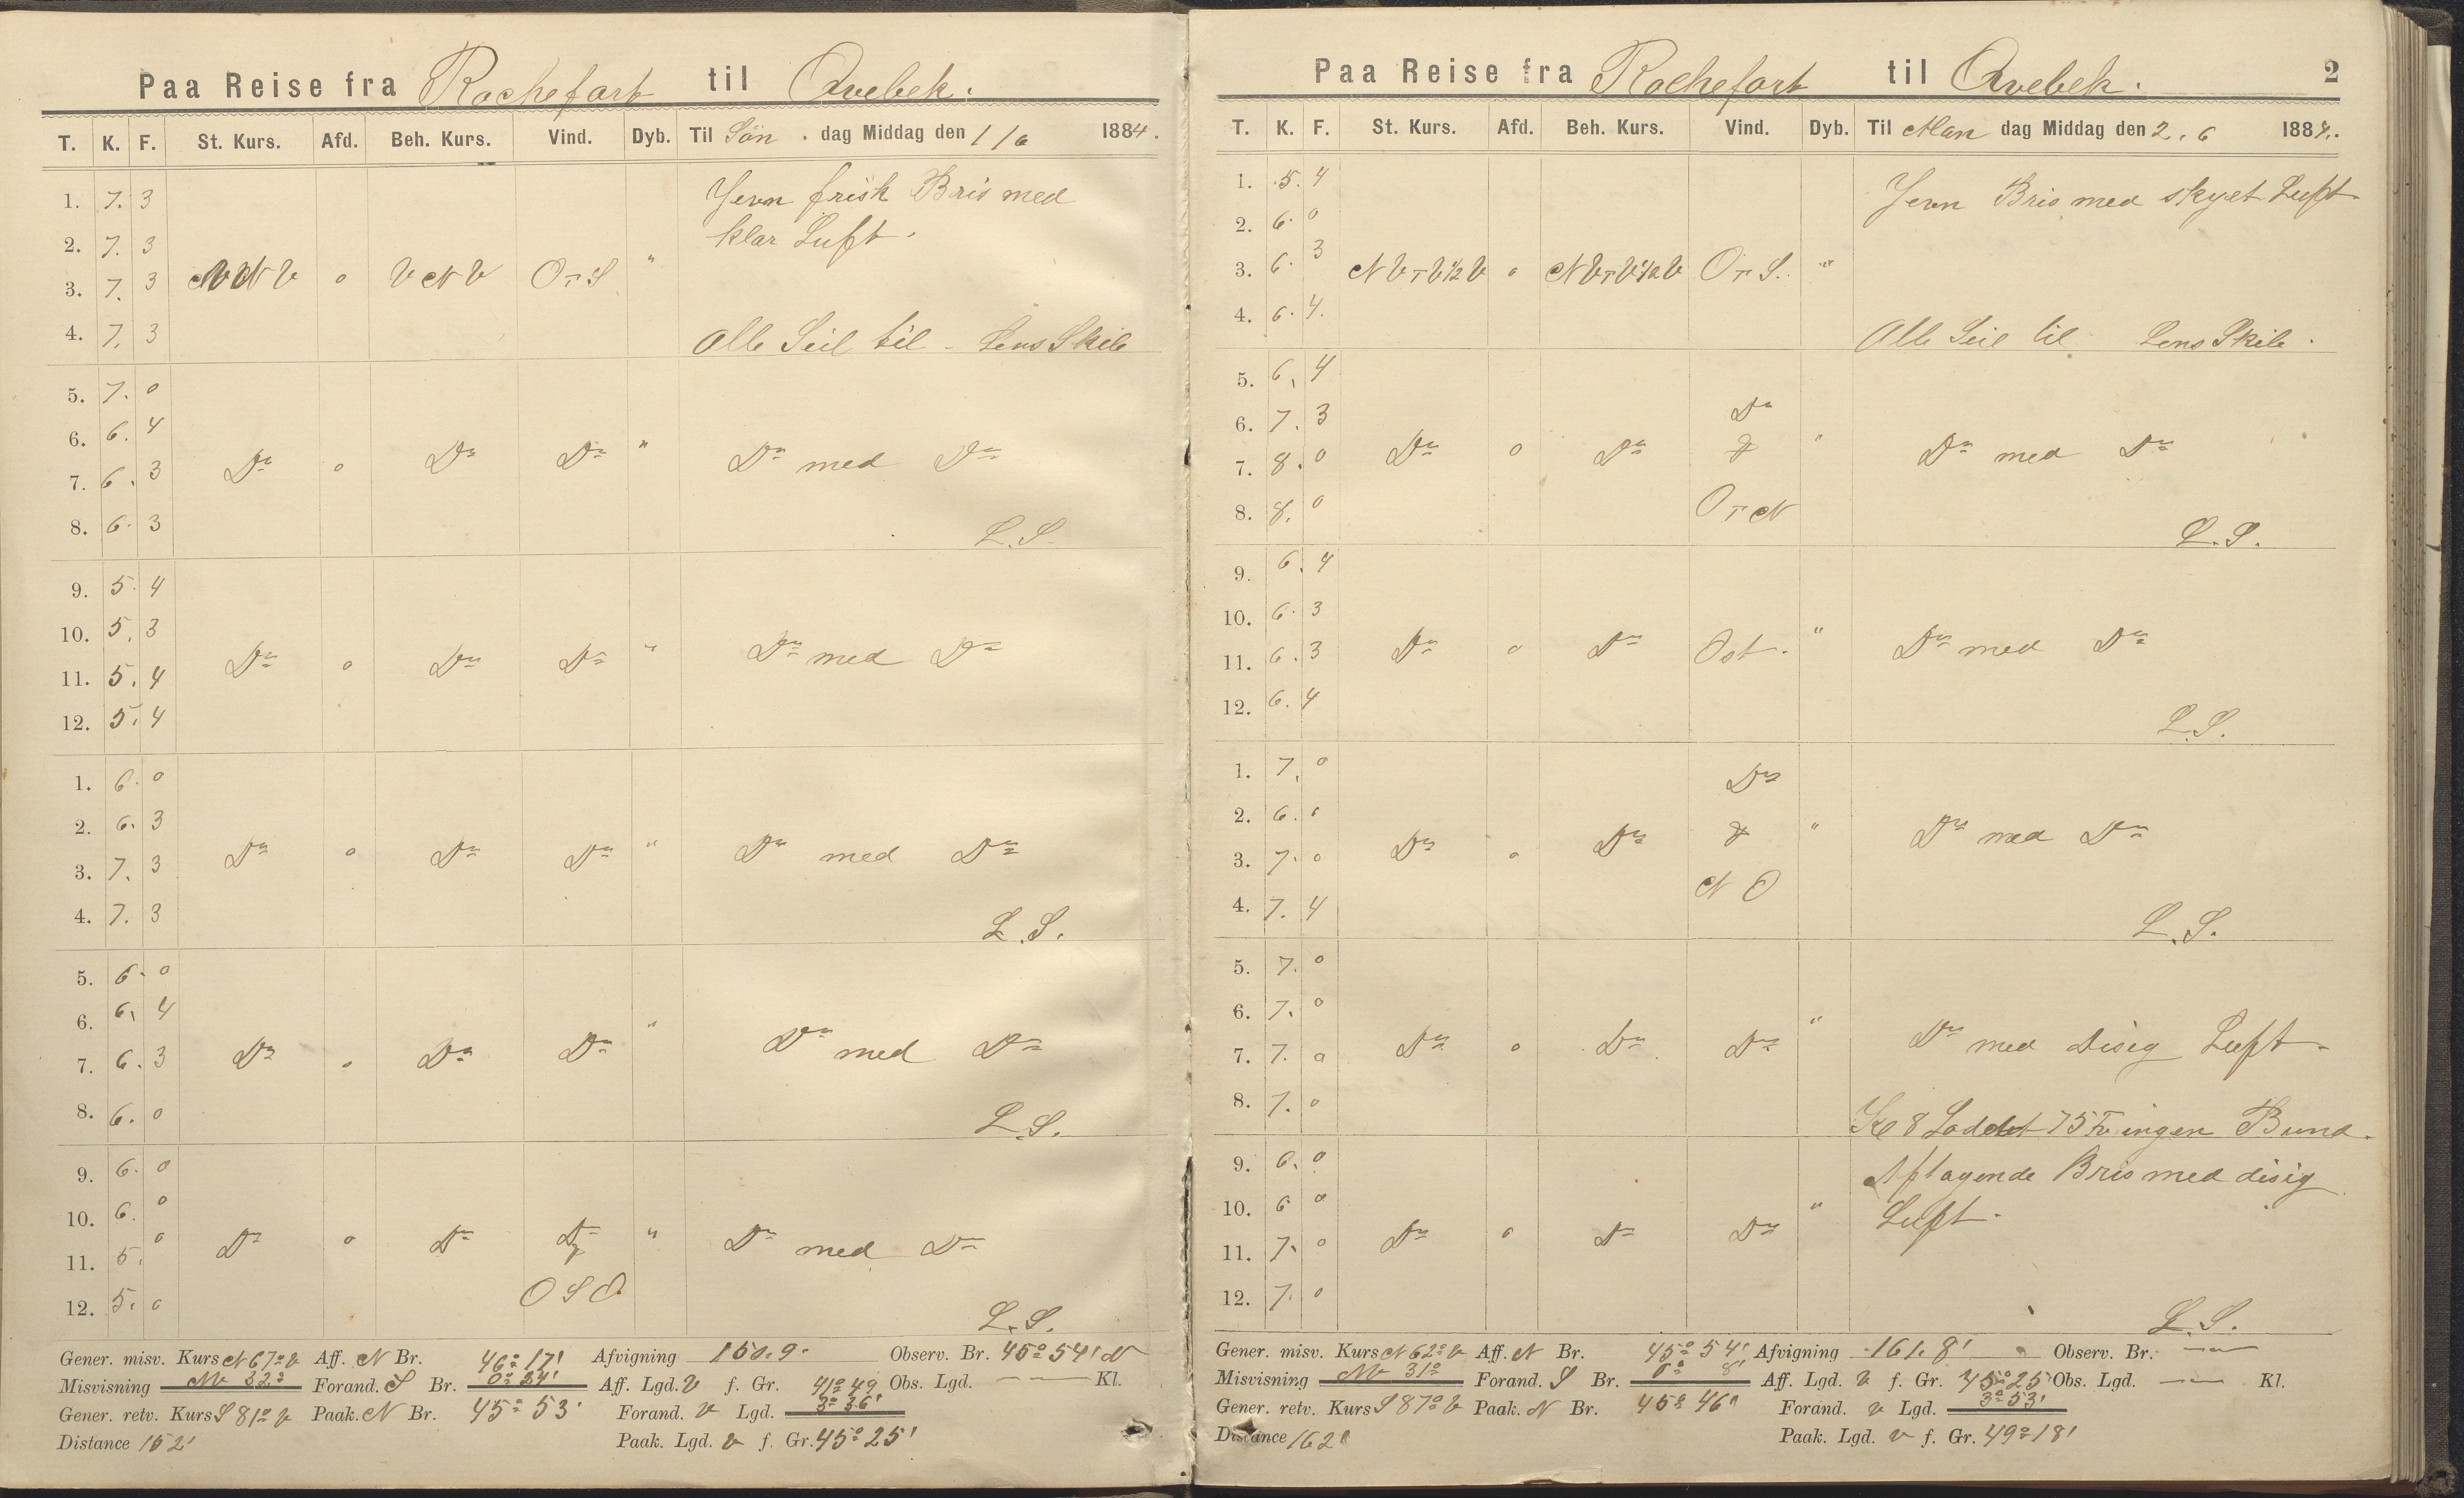 Paa Reise fra Rochefort til Qvebek.
T. K. F. St. Kurs. Afd. Beh. Kurs. Vind. Dyb. Til Sön . dag Middag den 1/6 1884.
1. 7. 3 Jevn frisk Bris med
2. 7. 3 klar Luft.
3. 7. 3 VNV o VNV OTS "
4. 7. 3 Alle Seil til - Lens Skib
5. 7. 0
6. 6. 4
7. 6. 3 Do o Do Do " Do med Do
8. 6. 3 L.S.
9. 5. 4
10. 5. 3
11. 5. 4 Do o Do Do " Do med Do
12. 5. 4
1. 6. 0
2. 6. 3
3. 7. 3 Do o Do Do " Do med Do
4. 7. 3 L.S.
5. 6. 0
6. 6. 4
7. 6. 3 Do o Do Do " Do med Do
8. 6. 0 L.S.
9. 6. 0
10. 6. 0
11. 5. 0 Do o Do Do " Do med Do
OSO
12. 5. 0 L.S.
Gener. misv. Kurs N 67° V Aff. N Br. 46° 17' Afvigning 150.9. Observ. Br. 45° 54' N
Misvisning NV 32° Forand. S Br. 0° 24' Aff. Lgd. V f. Gr. 41° 49 Obs. Lgd. — Kl.
Gener. retv. Kurs S 81° V Paak. N Br. 45° 53' Forand. V Lgd. 3° 36'
Distance 152' Paak. Lgd. V f. Gr. 45° 25'
Paa Reise fra Rochefort til Qvebek. 2
T. K. F. St. Kurs. Afd. Beh. Kurs. Vind. Dyb. Til Man dag Middag den 2. 6 1884.
1. 5. 4 Jevn Bris med skyet Luft
2. 6. 0
3. 6. 3 NVTV½V o NVTV½V OTS. "
4. 6. 4. Alle Seil til Lens Skib.
5. 6. 4
6. 7. 3 Do
7. 8. 0 Do o Do & " Do med Do
8. 8. 0 OTN L.S.
9. 6. 4
10. 6. 3
11. 6. 3 Do o Do Ost. " Do med Do
12. 6. 4 L.S.
1. 7. 0 Do
2. 6. 0
3. 7. 0 Do o Do & " Do med Do
4. 7. 4 NO L.S.
5. 7. 0
6. 7. 0
7. 7. 0 Do o Do Do " Do med disig Luft
8. 7. 0 Kl 8 Loddet 75 Fv ingen Bund.
9. 6. 0 Aftagende Bris med disig
10. 6 0 Luft.
11. 7. 0 Do o Do Do "
12. 7. 0 L.S.
Gener. misv. Kurs N 62° V Aff. N Br. 45° 54' Afvigning 161. 8' Observ. Br. —
Misvisning NV 31° Forand. S Br. 0° 8' Aff. Lgd. V f. Gr. 45° 25' Obs. Lgd. — Kl.
Gener. retv. Kurs S 87° V Paak. N Br. 45° 46' Forand. V Lgd. 3° 53'
Distance 162' Paak. Lgd. V f. Gr. 49° 18'